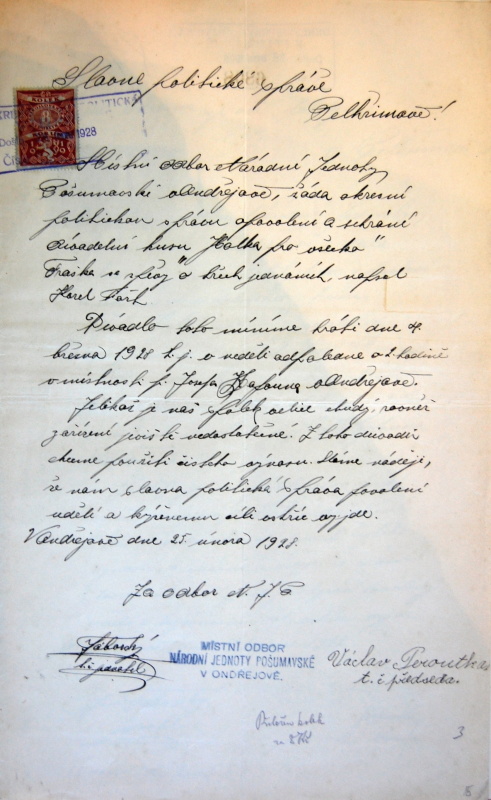 Slavné politické správě
Pelhřimově!
KOLEK
8
1928
Místní odbor Národní Jednoty
Pošumavské v Ondřejově, žádá okresní
politickou správu o povolení a schrání
divadelní kusu „Holka pro všecko"
Fraška se zpěvy o třech jednáních, napsal
Karel Fořt
Divadlo toto míníme hráti dne 4.
března 1928 t.j. v neděli odpoledne o 2. hodině
v místnosti p. Josefa v Ondřejově.
Jelikož je náš spolek velice chudý, rovněž
zařízení jeviště nedostatečné. Z toho důvodu
chceme použíti čistého výnosu. Máme naději,
že nám slavná politická správa povolení
udělí a kýženému cíli vstříc vyjde.
V Ondřejově dne 25. února 1928.
Za odbor N. J. P
MÍSTNÍ ODBOR
NÁRODNÍ JEDNOTY POŠUMAVSKÉ
V ONDŘEJOVĚ.
Václav Peroutka
t. č. předseda.
3